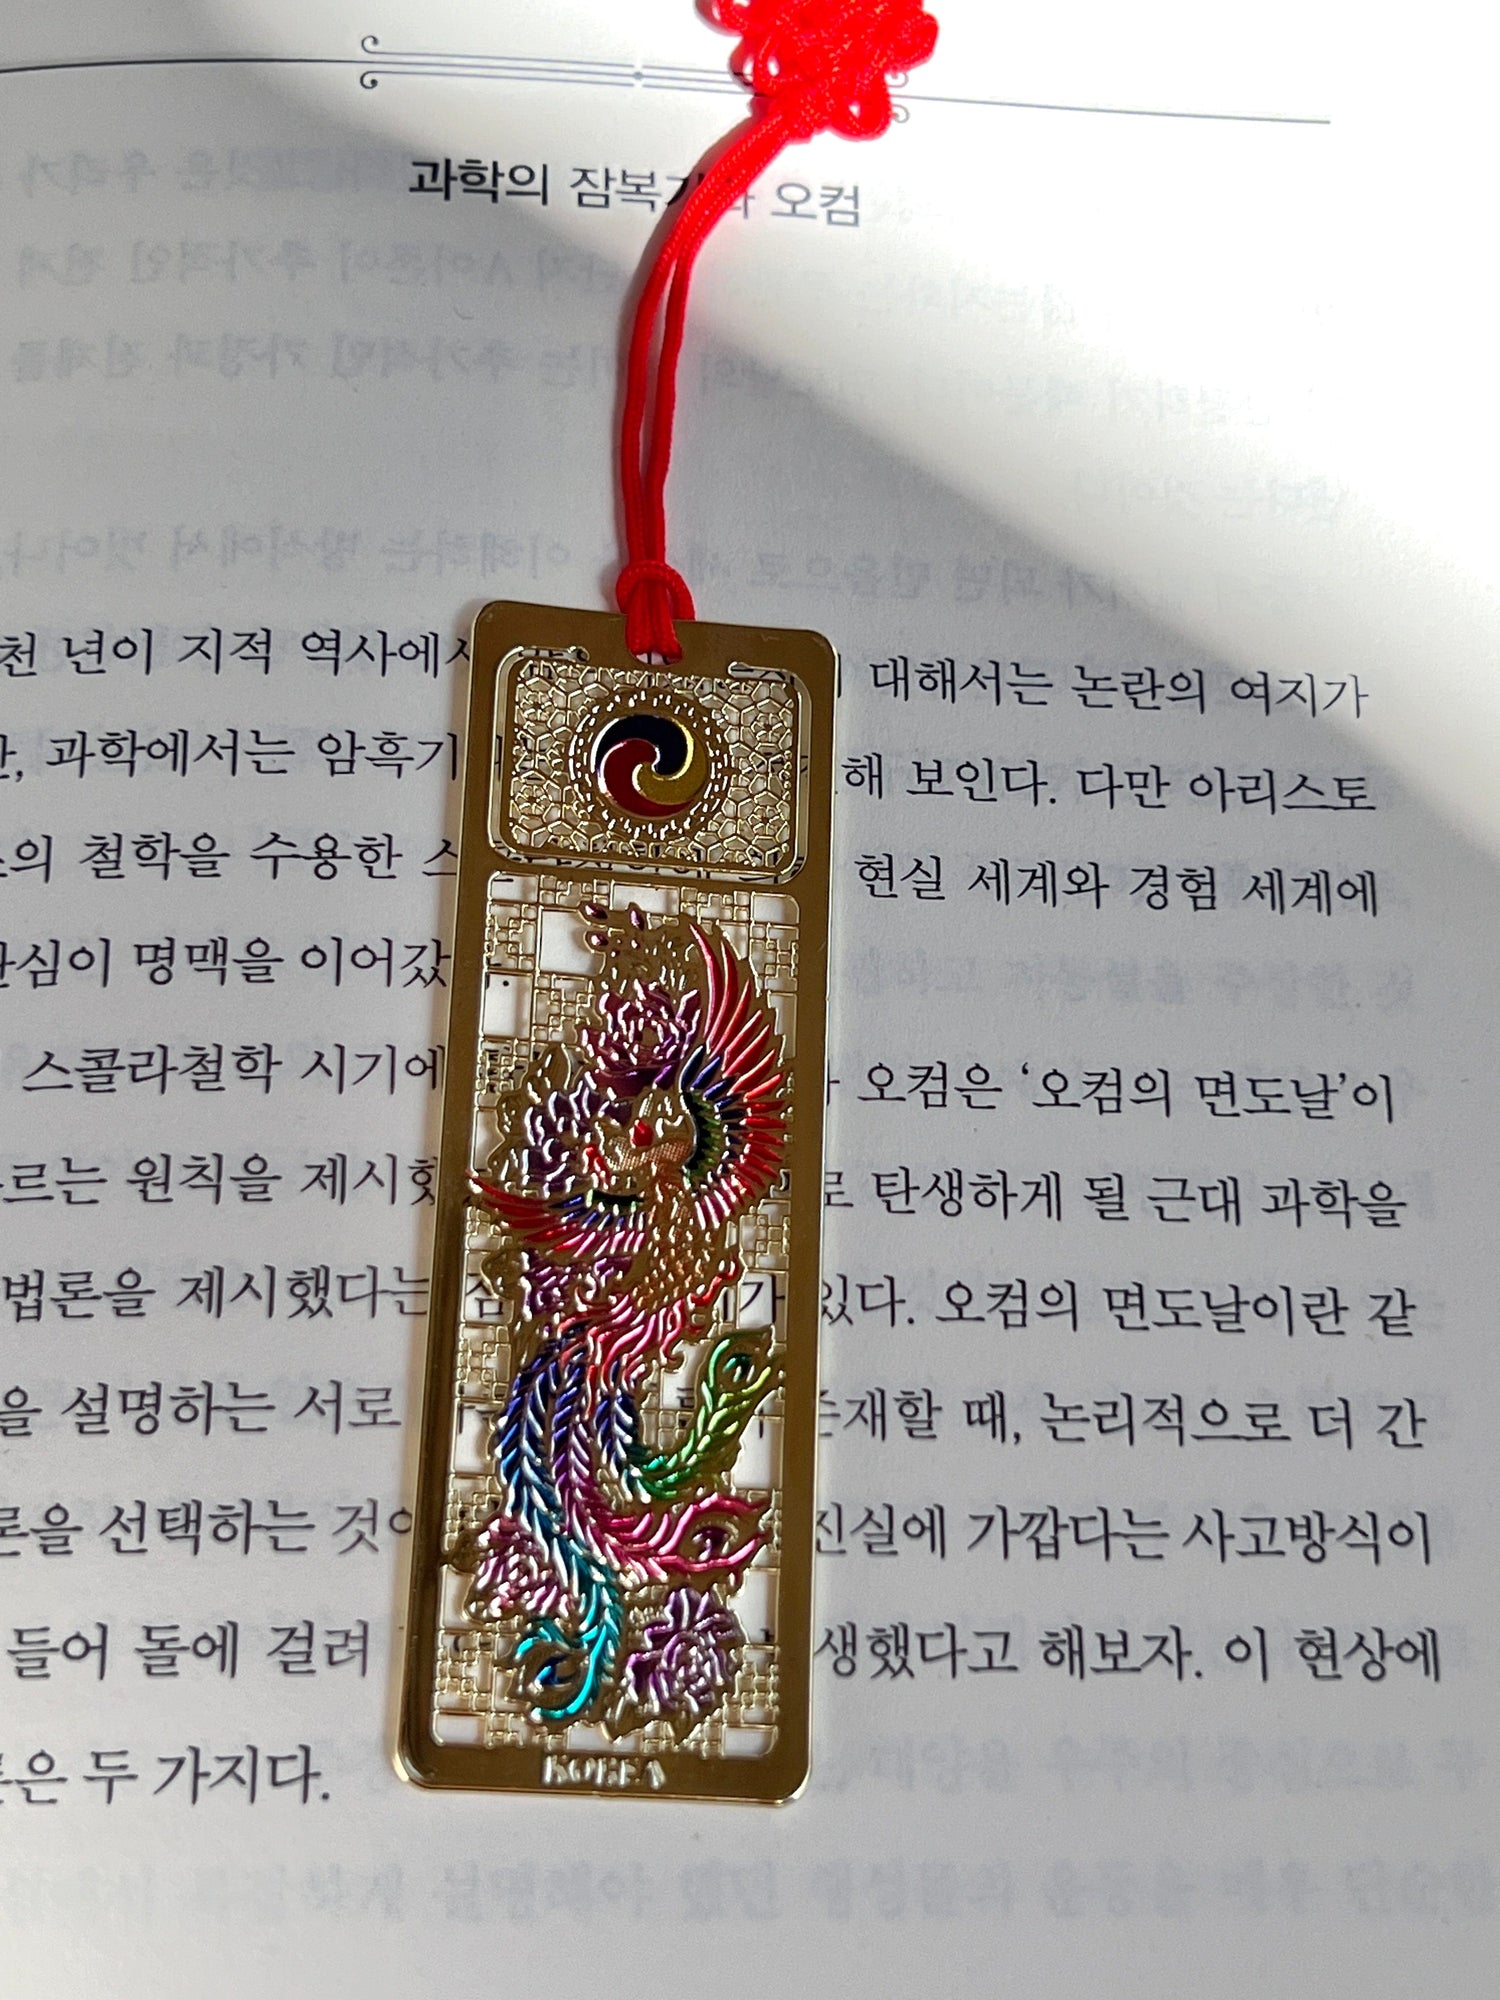 과학의 잠복기와 오컴
천 년이 지적 역사에서 대해서는 논란의 여지가
과학에서는 암흑기 해 보인다. 다만 아리스토
의 철학을 수용한 현실 세계와 경험 세계에
관심이 명맥을 이어갔다.
스콜라철학 시기에 오컴은 ‘오컴의 면도날’이
원칙을 제시했 로 탄생하게 될 근대 과학을
법론을 제시했다는 점 있다. 오컴의 면도날이란 같
을 설명하는 서로 존재할 때, 논리적으로 더 간
론을 선택하는 것이 진실에 가깝다는 사고방식이
들어 돌에 걸려 생했다고 해보자. 이 현상에
은 두 가지다.
KOREA